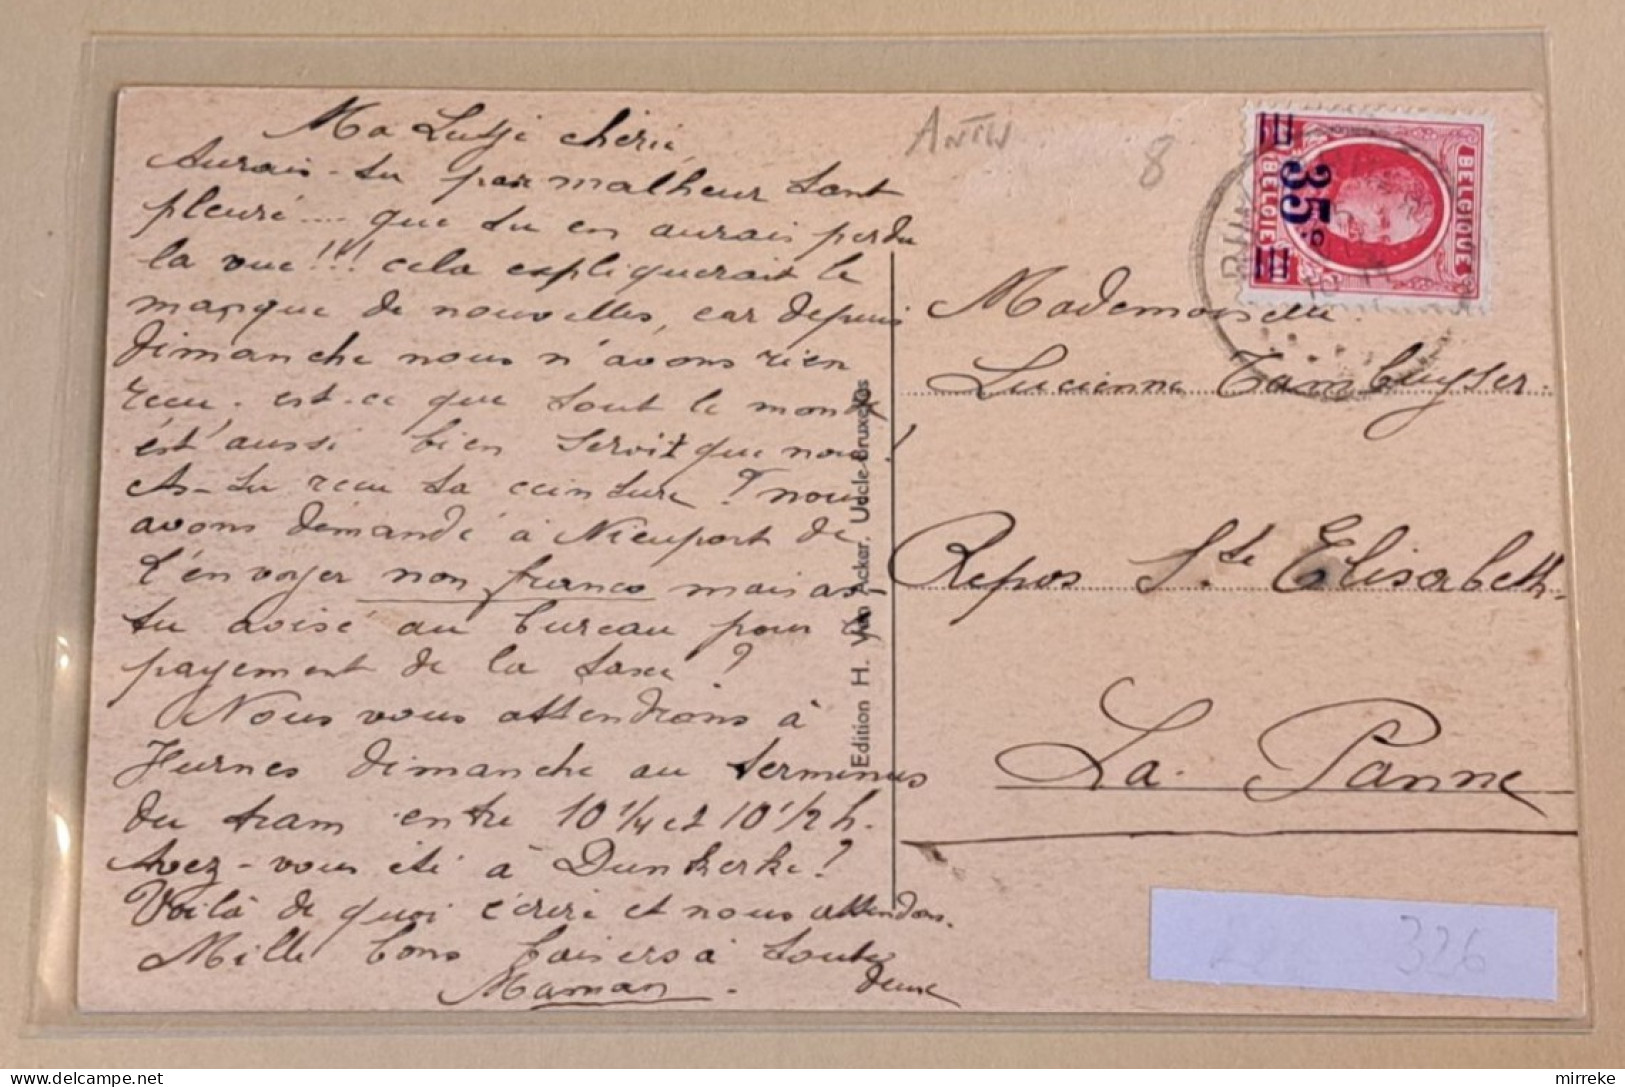 Ma Lutji chérie,
Aurais-tu par malheur tant
pleuré .... que tu en aurais perdu
la vue!!! cela expliquerait le
manque de nouvelles, car depuis
dimanche nous n'avons rien
recu. est-ce que tout le monde
est aussi bien servit que nous!
As-tu recu ta ceinture? nous
avons demandé à Nieuport de
l'envoyer non franco mais as-
tu avisé au bureau pour le
payement de la taxe?
Nous vous attendrons à
Furnes dimanche au terminus
du tram entre 10 1/4 et 10 1/2 h.
Avez-vous été à Dunkerke?
Voilà de quoi écrire et nous attendons.
Mille bons baisers à toutes
deux
Maman.
Edition H. Van Acker, Uccle-Bruxelles
ANTW
8
BELGIQUE
BELGIE
35c
Mademoiselle
Lucienne Tambuyser.
Repos Ste Elisabeth.
La Panne
326
mirreke